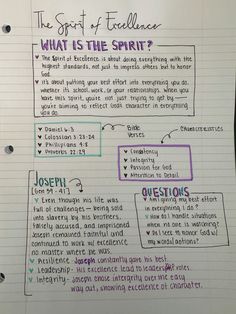 The Spirit of Excellence
WHAT IS THE SPIRIT?
♥ The Spirit of Excellence is about doing everything with the
highest standards, not just to impress others but to honor
God.
♥ It's about putting your best effort into everything you do,
whether it's school, work, or your relationships. When you
have this spirit, you're not just trying to get by—
you're aiming to reflect God's character in everything
you do.
♥ Daniel 6:3
♥ Colossians 3:23-24
♥ Philippians 4:8
♥ Proverbs 22:29
Bible
Verses
CHARACTERISTICS
♥ Consistency
♥ Integrity
♥ Passion for God
♥ Attention to Detail
JOSEPH
[Gen 39-41]
♥ Even though his life was
full of challenges — being sold
into slavery by his brothers,
falsely accused, and imprisoned
Joseph remained faithful and
continued to work w/ excellence
no matter where he was.
♥ Resilience - Joseph constantly gave his best.
♥ Leadership - His excellence lead to leadership roles.
♥ Integrity - Joseph chose integrity over the easy
way out, showing excellence of character.
QUESTIONS
♥ Am I giving my best effort
in everything I do?
♥ How do I handle situations
when no one is watching?
♥ Do I seek to honor God w/
my words/actions?